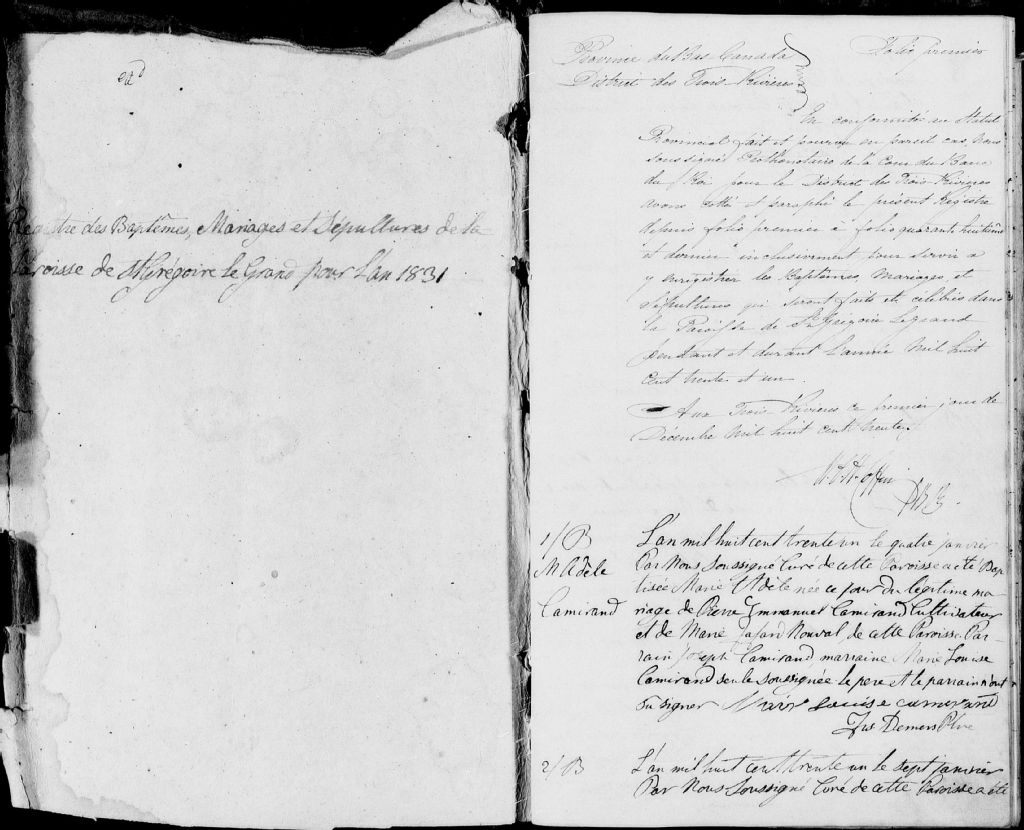 2d
Registre des Baptêmes, Mariages et Sépultures de la
Paroisse de St Grégoire le Grand pour l'an 1831
Province du Bas Canada
District des Trois Rivieres
Folio premier
En conformité au Statut
Provincial fait et pourvu en pareil cas, nous
soussigné Prothonotaire de la Cour du Banc
du Roi pour le District des Trois-Rivieres
avons cotté et paraphé le présent Registre
depuis folio premier à folio quarante huitième
et dernier inclusivement pour servir à
y enregistrer les Baptêmes, Mariages et
Sépultures qui seront faits et célébrés dans
la Paroisse de St Grégoire Legrand
pendant et durant l'année Mil huit
cent trente et un.
Aux Trois Rivieres ce premier jour de
Décembre Mil huit cent trente.
Coffin
1/ B
M Adele
Camirand
L'an mil huit cent trente un le quatre janvier
Par Nous Soussigné Curé de cette Paroisse a été Bap
tisée Marie Adele née ce jour du légitime ma
riage de Pierre Emmanuel Camirand Cultivateur
et de Marie Nouval de cette Paroisse. Par-
rain Joseph Camirand marraine Marie Louise
Camirand seule soussignée le pere et le parrain n'ont
su signer Marie Louise camirand
Demers Ptre
2/ B
L'an mil huit cent trente un le sept janvier
Par Nous Soussigné Curé de cette Paroisse a été